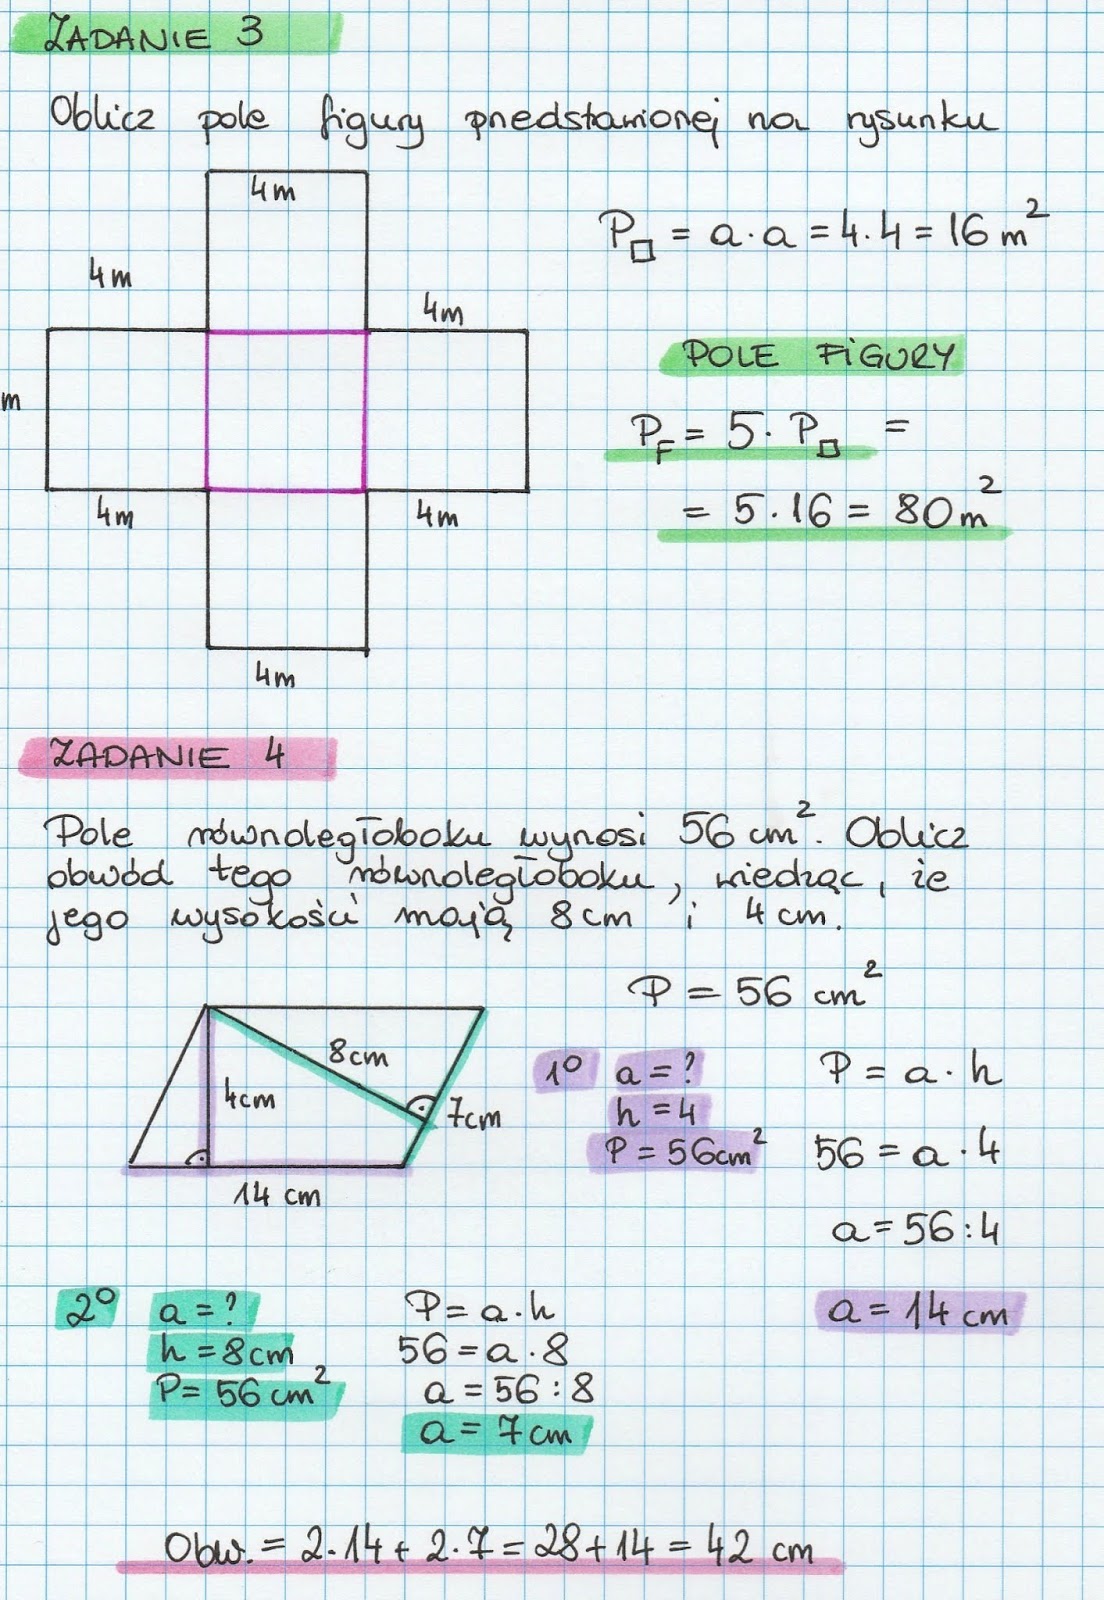 ZADANIE 3
Oblicz pole figury przedstawionej na rysunku
4m
4m
4m
m
4m
4m
4m
P□ = a·a = 4·4 = 16 m²
POLE FIGURY
P_F = 5·P□ =
= 5·16 = 80 m²
ZADANIE 4
Pole równoległoboku wynosi 56 cm². Oblicz
obwód tego równoległoboku, wiedząc, że
jego wysokości mają 8 cm i 4 cm.
P = 56 cm²
8cm
4cm
7cm
14 cm
1° a = ? P = a·h
h = 4
P = 56cm² 56 = a·4
a = 56:4
a = 14 cm
2° a = ? P = a·h
h = 8cm 56 = a·8
P = 56 cm² a = 56:8
a = 7cm
Obw. = 2·14 + 2·7 = 28 + 14 = 42 cm